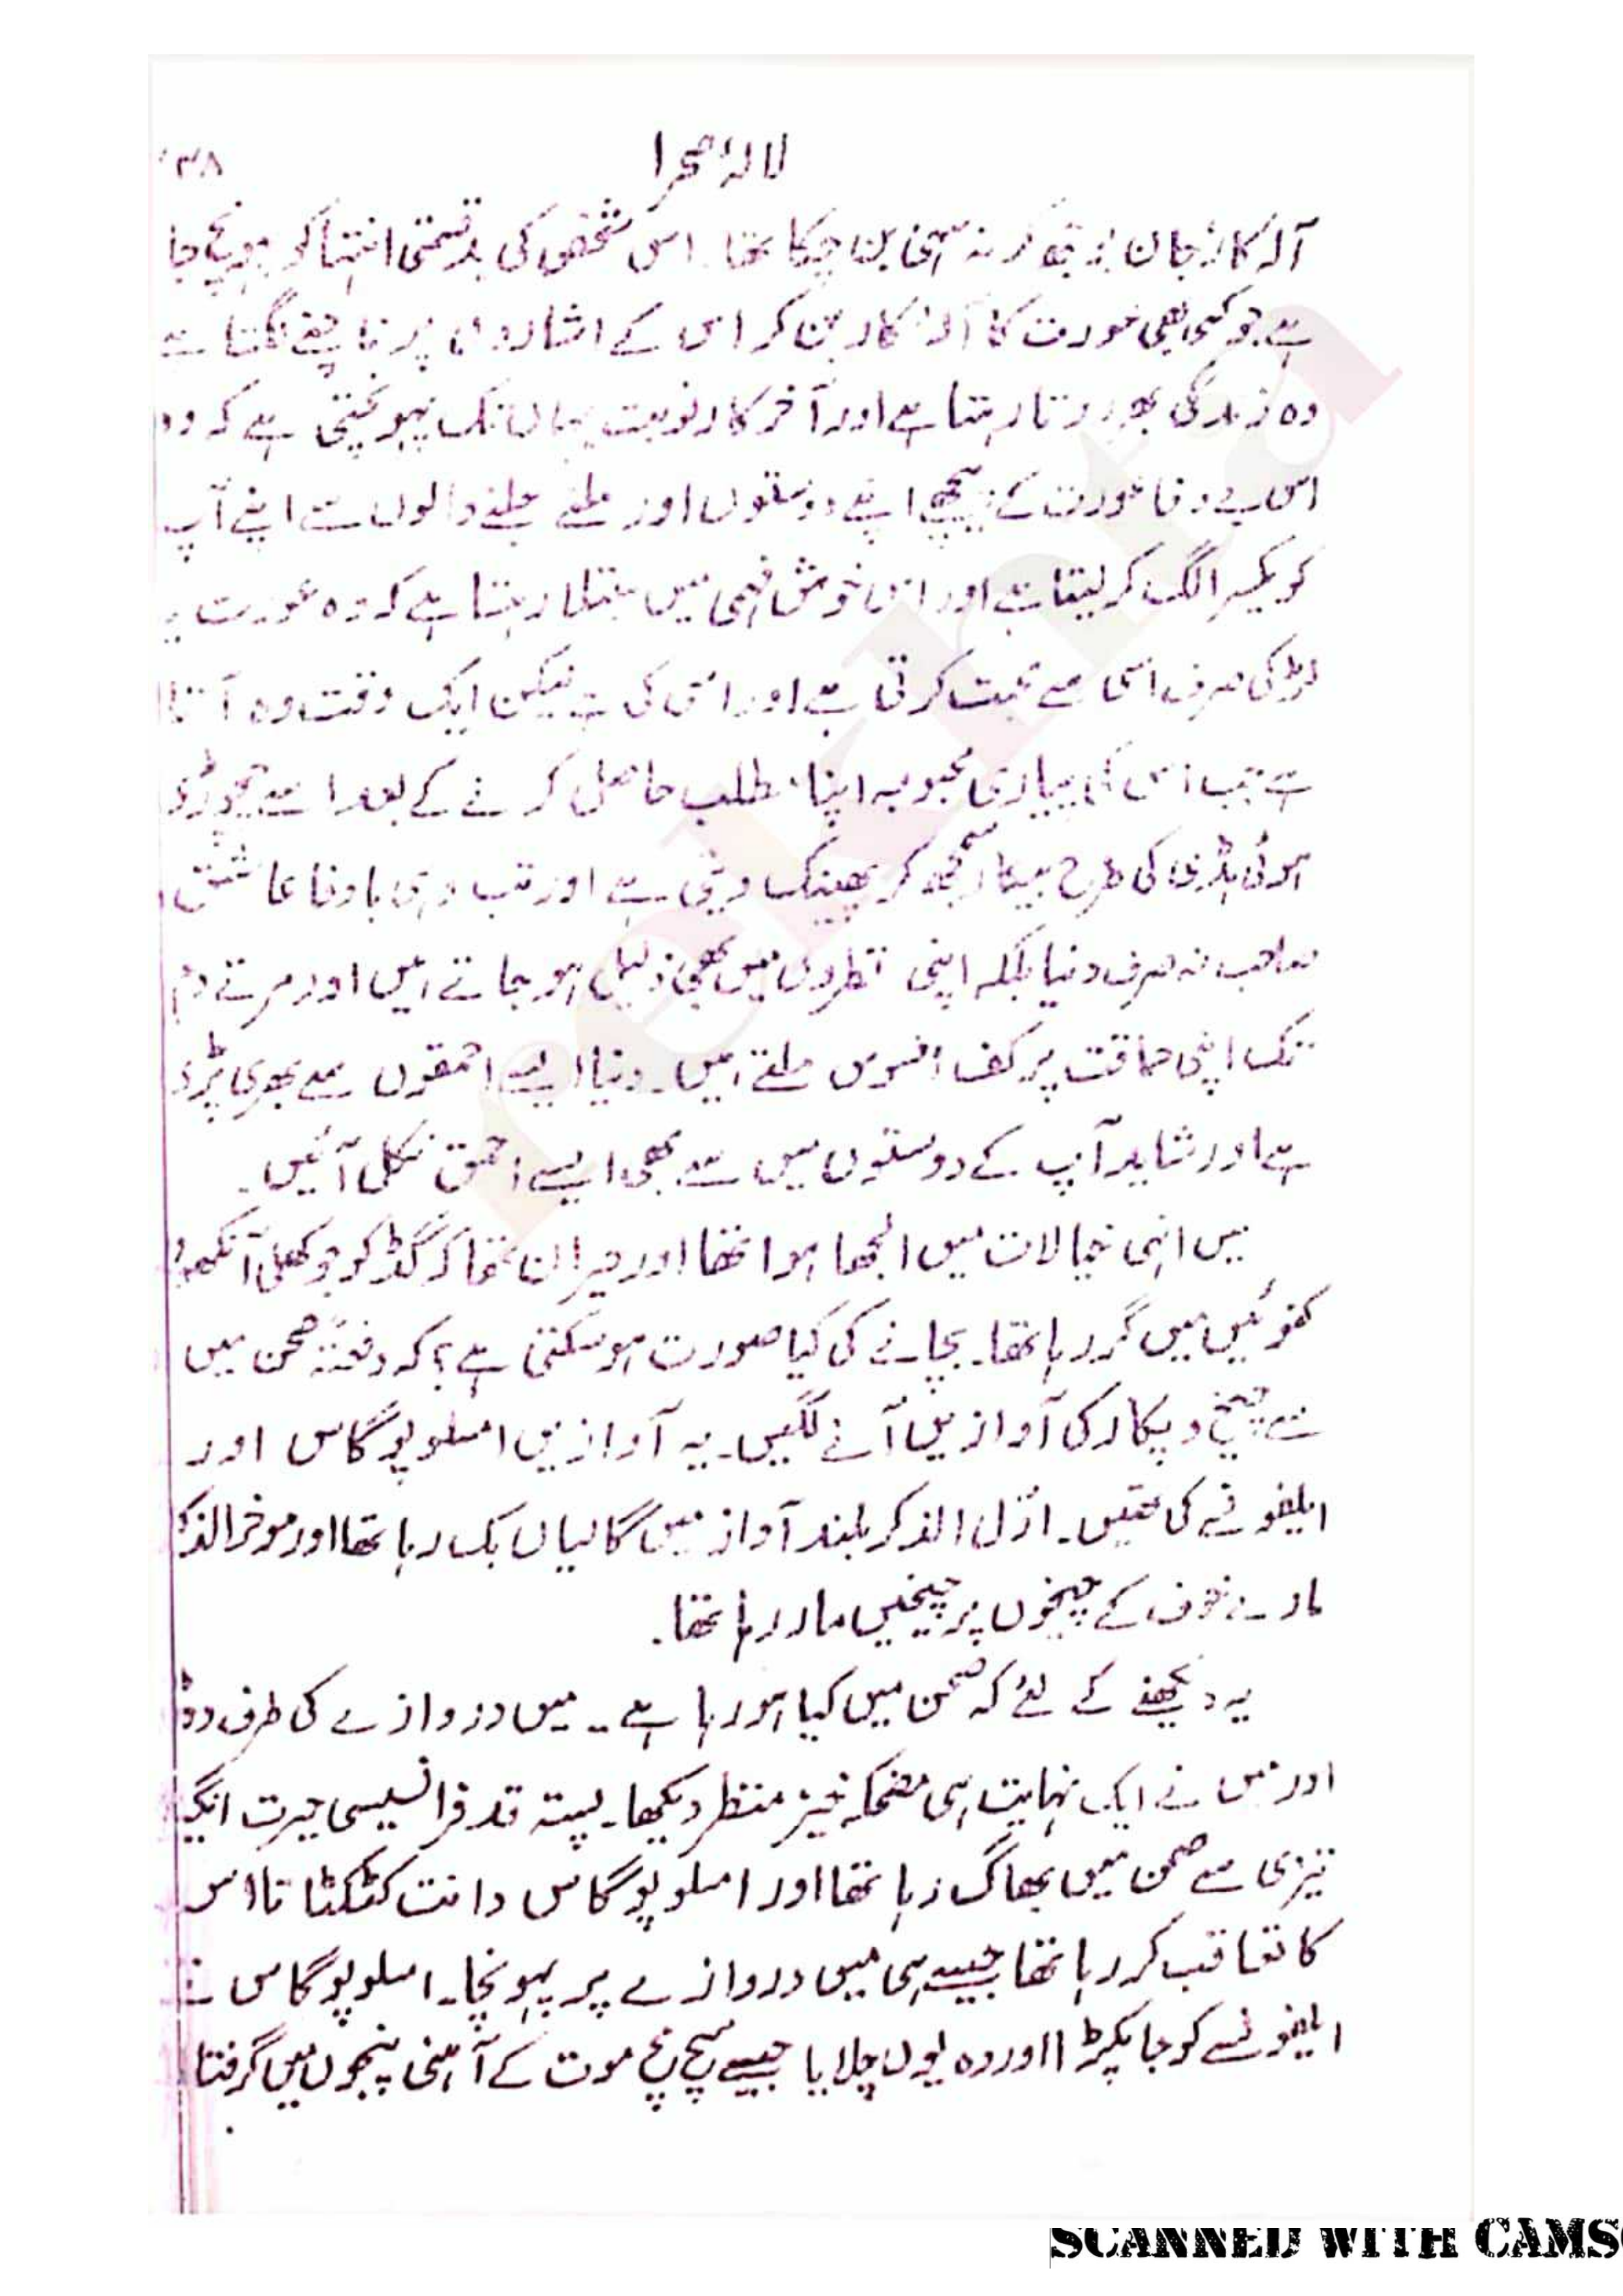 لالۂ صحرا ۳۸
آلہ کار جان بوجھ کر نہ سہی بن چکا تھا۔ اس شخص کی بدقسمتی انتہا کو پہونچ جا
ہے جو کسی بھی عورت کا آلہ کار بن کر اس کے اشاروں پر ناچنے لگتا ہے
وہ زندگی بھر روتا رہتا ہے اور آخر کار نوبت یہاں تک پہونچتی ہے کہ وہ
اس بے وفا عورت کے پیچھے اپنے دوستوں اور ملنے جلنے والوں سے اپنے آپ
کو یکسر الگ کر لیتا ہے اور اس خوش فہمی میں مبتلا رہتا ہے کہ وہ عورت یا
لڑکی صرف اسی سے محبت کرتی ہے اور اسی کی ہے لیکن ایک وقت وہ آتا
ہے جب اس کی پیاری محبوبہ اپنا مطلب حاصل کرنے کے بعد اسے چچوڑی
ہوئی ہڈی کی طرح بیکار سمجھ کر پھینک دیتی ہے اور تب وہی باوفا عاشق
صاحب نہ صرف دنیا بلکہ اپنی نظروں میں بھی ذلیل ہو جاتے ہیں اور مرتے دم
تک اپنی حماقت پر کف افسوس ملتے ہیں۔ دنیا ایسے احمقوں سے بھری پڑی
ہے اور شاید آپ کے دوستوں میں سے بھی ایسے احمق نکل آئیں۔
میں انہی خیالات میں الجھا ہوا تھا اور حیران تھا کہ گڈ کو جو کھلی آنکھوں
کنوئیں میں گر رہا تھا۔ بچانے کی کیا صورت ہو سکتی ہے؟ کہ دفعتہً صحن میں
سے چیخ و پکار کی آوازیں آنے لگیں۔ یہ آوازیں امسلوپوگاس اور
ایلفونسے کی تھیں۔ اوّل الذکر بلند آواز میں گالیاں بک رہا تھا اور موخر الذکر
مارے خوف کے چیخوں پر چیخیں مار رہا تھا۔
یہ دیکھنے کے لئے کہ صحن میں کیا ہو رہا ہے۔ میں دروازے کی طرف دوڑ
اور میں نے ایک نہایت ہی مضحکہ خیز منظر دیکھا۔ پستہ قد فرانسیسی حیرت انگیز
تیزی سے صحن میں بھاگ رہا تھا اور امسلوپوگاس دانت کٹکٹاتا اس
کا تعاقب کر رہا تھا جیسے ہی میں دروازے پر پہونچا۔ امسلوپوگاس نے
ایلفونسے کو جا پکڑا اور وہ یوں چلایا جیسے سچ مچ موت کے آہنی پنجوں میں گرفتا
SCANNED WITH CAMS